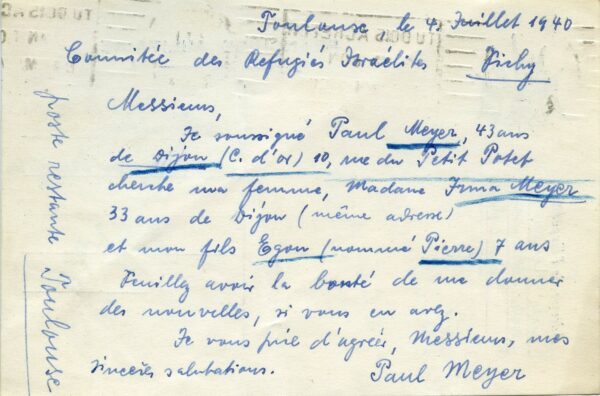 Toulouse le 4. Juillet 1940
Commitée des Refugiés Israélites Vichy
Messieurs,
Je soussigné Paul Meyer, 43 ans
de Dijon (C. d'or) 10, rue du Petit Potet
cherche ma femme, Madame Irma Meyer
33 ans de Dijon (même adresse)
et mon fils Egon (nommé Pierre) 7 ans
Veuillez avoir la bonté de me donner
des nouvelles, si vous en avez.
Je vous prie d'agréer, Messieurs, mes
sincères salutations.
Paul Meyer
poste restante Toulouse